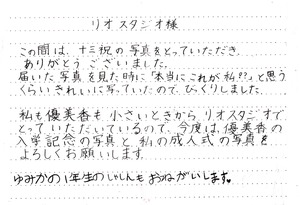 リオスタジオ様
この間は、十三祝の写真をとっていただき、
ありがとうございました。
届いた写真を見た時に「本当にこれが私??」と思う
くらいきれいに写っていたので、びっくりしました。
私も優美香も小さいときからリオスタジオで
とっていただいているので、今度は、優美香の
入学記念の写真と私の成人式の写真を
よろしくお願いします。
ゆみかの1年生のしゃしんもおねがいします。